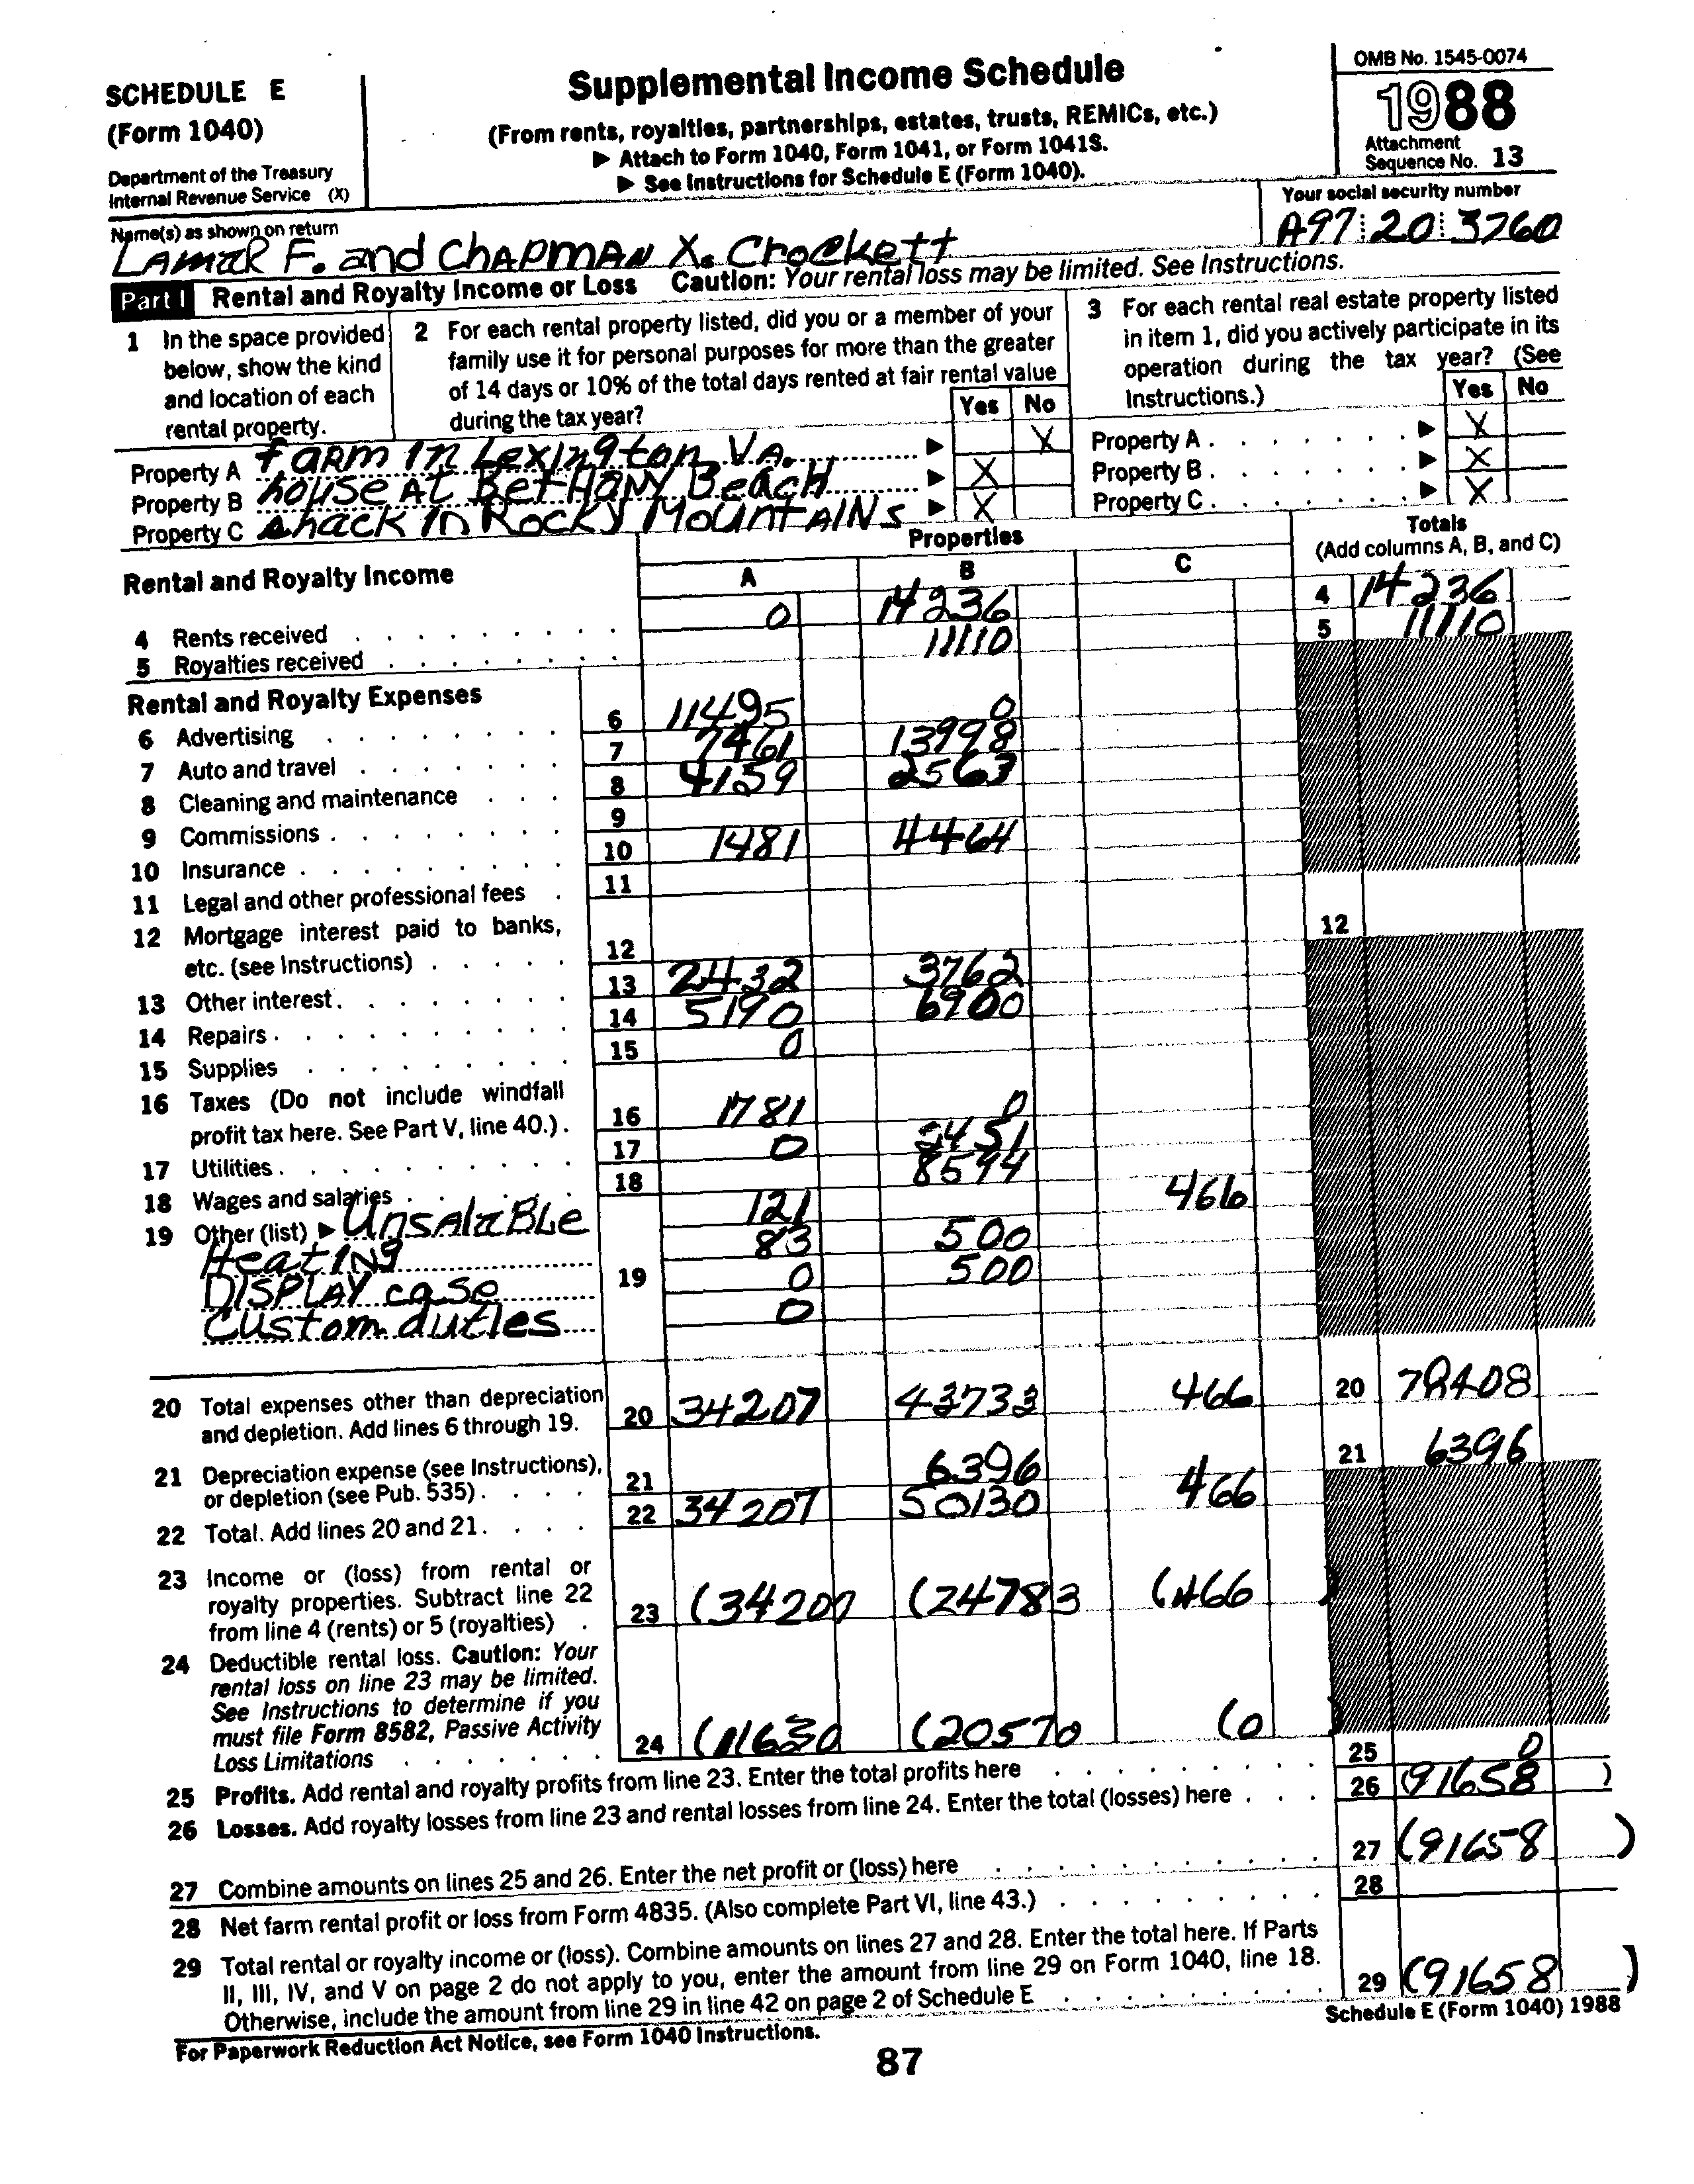 SCHEDULE E
(Form 1040)
Department of the Treasury
Internal Revenue Service (X)
Supplemental Income Schedule
(From rents, royalties, partnerships, estates, trusts, REMICs, etc.)
▶ Attach to Form 1040, Form 1041, or Form 1041S.
▶ See Instructions for Schedule E (Form 1040).
OMB No. 1545-0074
1988
Attachment
Sequence No. 13
Name(s) as shown on return
LAmaR F. and CHAPMAN X. Crockett
Your social security number
A97 20 3760
Part I Rental and Royalty Income or Loss Caution: Your rental loss may be limited. See Instructions.
1 In the space provided
below, show the kind
and location of each
rental property.
2 For each rental property listed, did you or a member of your
family use it for personal purposes for more than the greater
of 14 days or 10% of the total days rented at fair rental value
during the tax year?
Yes No
3 For each rental real estate property listed
in item 1, did you actively participate in its
operation during the tax year? (See
Instructions.)
Yes No
Property A farm in Lexington, VA. ▶ X
Property A ▶ X
Property B house At BetHany Beach ▶ X
Property B ▶ X
Property C shack in Rocky MountAINs ▶ X
Property C ▶ X
Rental and Royalty Income
Properties
A B C
Totals
(Add columns A, B, and C)
4 Rents received 0 14236 4 14236
5 Royalties received 11110 5 11110
Rental and Royalty Expenses
6 Advertising 6 11495 0
7 Auto and travel 7 7461 13998
8 Cleaning and maintenance 8 4159 2563
9 Commissions 9
10 Insurance 10 1481 4464
11 Legal and other professional fees 11
12 Mortgage interest paid to banks,
etc. (see Instructions) 12 12
13 Other interest 13 2432 3762
14 Repairs 14 5190 6900
15 Supplies 15 0
16 Taxes (Do not include windfall
profit tax here. See Part V, line 40.) 16 1781 0
17 Utilities 17 0 2451
18 Wages and salaries 18 8594
19 Other (list) ▶ UnsAlaBLe 121 466
HeatINg 83 500
DISPLAY case 19 0 500
Custom duties 0
20 Total expenses other than depreciation
and depletion. Add lines 6 through 19. 20 34207 43733 466 20 78408
21 Depreciation expense (see Instructions),
or depletion (see Pub. 535) 21 6396 21 6396
22 Total. Add lines 20 and 21 22 34207 50130 466
23 Income or (loss) from rental or
royalty properties. Subtract line 22
from line 4 (rents) or 5 (royalties) 23 (34207 (24783 (466 )
24 Deductible rental loss. Caution: Your
rental loss on line 23 may be limited.
See Instructions to determine if you
must file Form 8582, Passive Activity
Loss Limitations 24 (11630 (20570 (0 )
25 Profits. Add rental and royalty profits from line 23. Enter the total profits here 25 0
26 Losses. Add royalty losses from line 23 and rental losses from line 24. Enter the total (losses) here 26 (91658 )
27 Combine amounts on lines 25 and 26. Enter the net profit or (loss) here 27 (91658 )
28 Net farm rental profit or loss from Form 4835. (Also complete Part VI, line 43.) 28
29 Total rental or royalty income or (loss). Combine amounts on lines 27 and 28. Enter the total here. If Parts
II, III, IV, and V on page 2 do not apply to you, enter the amount from line 29 on Form 1040, line 18.
Otherwise, include the amount from line 29 in line 42 on page 2 of Schedule E 29 (91658 )
For Paperwork Reduction Act Notice, see Form 1040 Instructions.
Schedule E (Form 1040) 1988
87